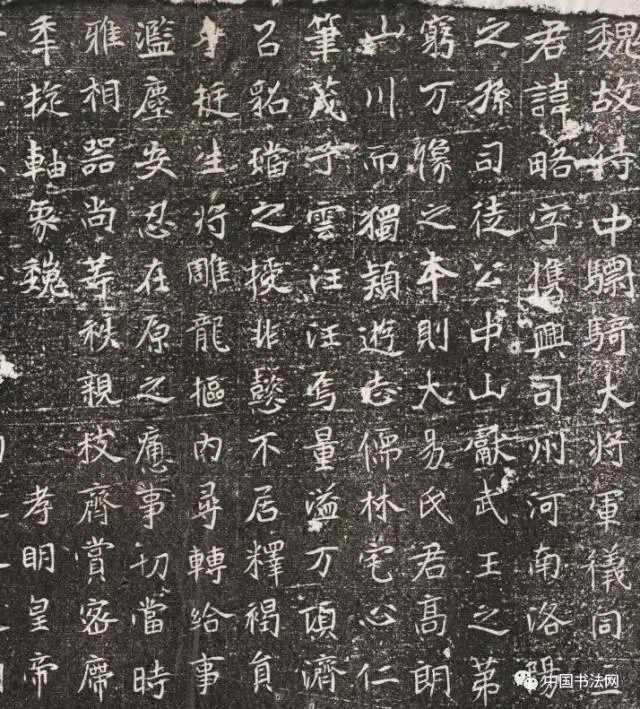 魏故侍中驃騎大将軍儀同三
君諱略字攜興司州河南洛陽
之孫司徒公中山獻武王之第
窮万之本則大易氏君高朗
山川而獨穎遊志儒林宅心仁
筆茂子雲汪汪焉量溢万頃濟
召貂璫之授非懿不居釋褐員
挺生将雕龍樞內尋轉給事
濫塵安忍在原之應事切當時
雅相器尚等秩親枝齊賞密席
秊軸象魏 孝明皇帝
中国书法网